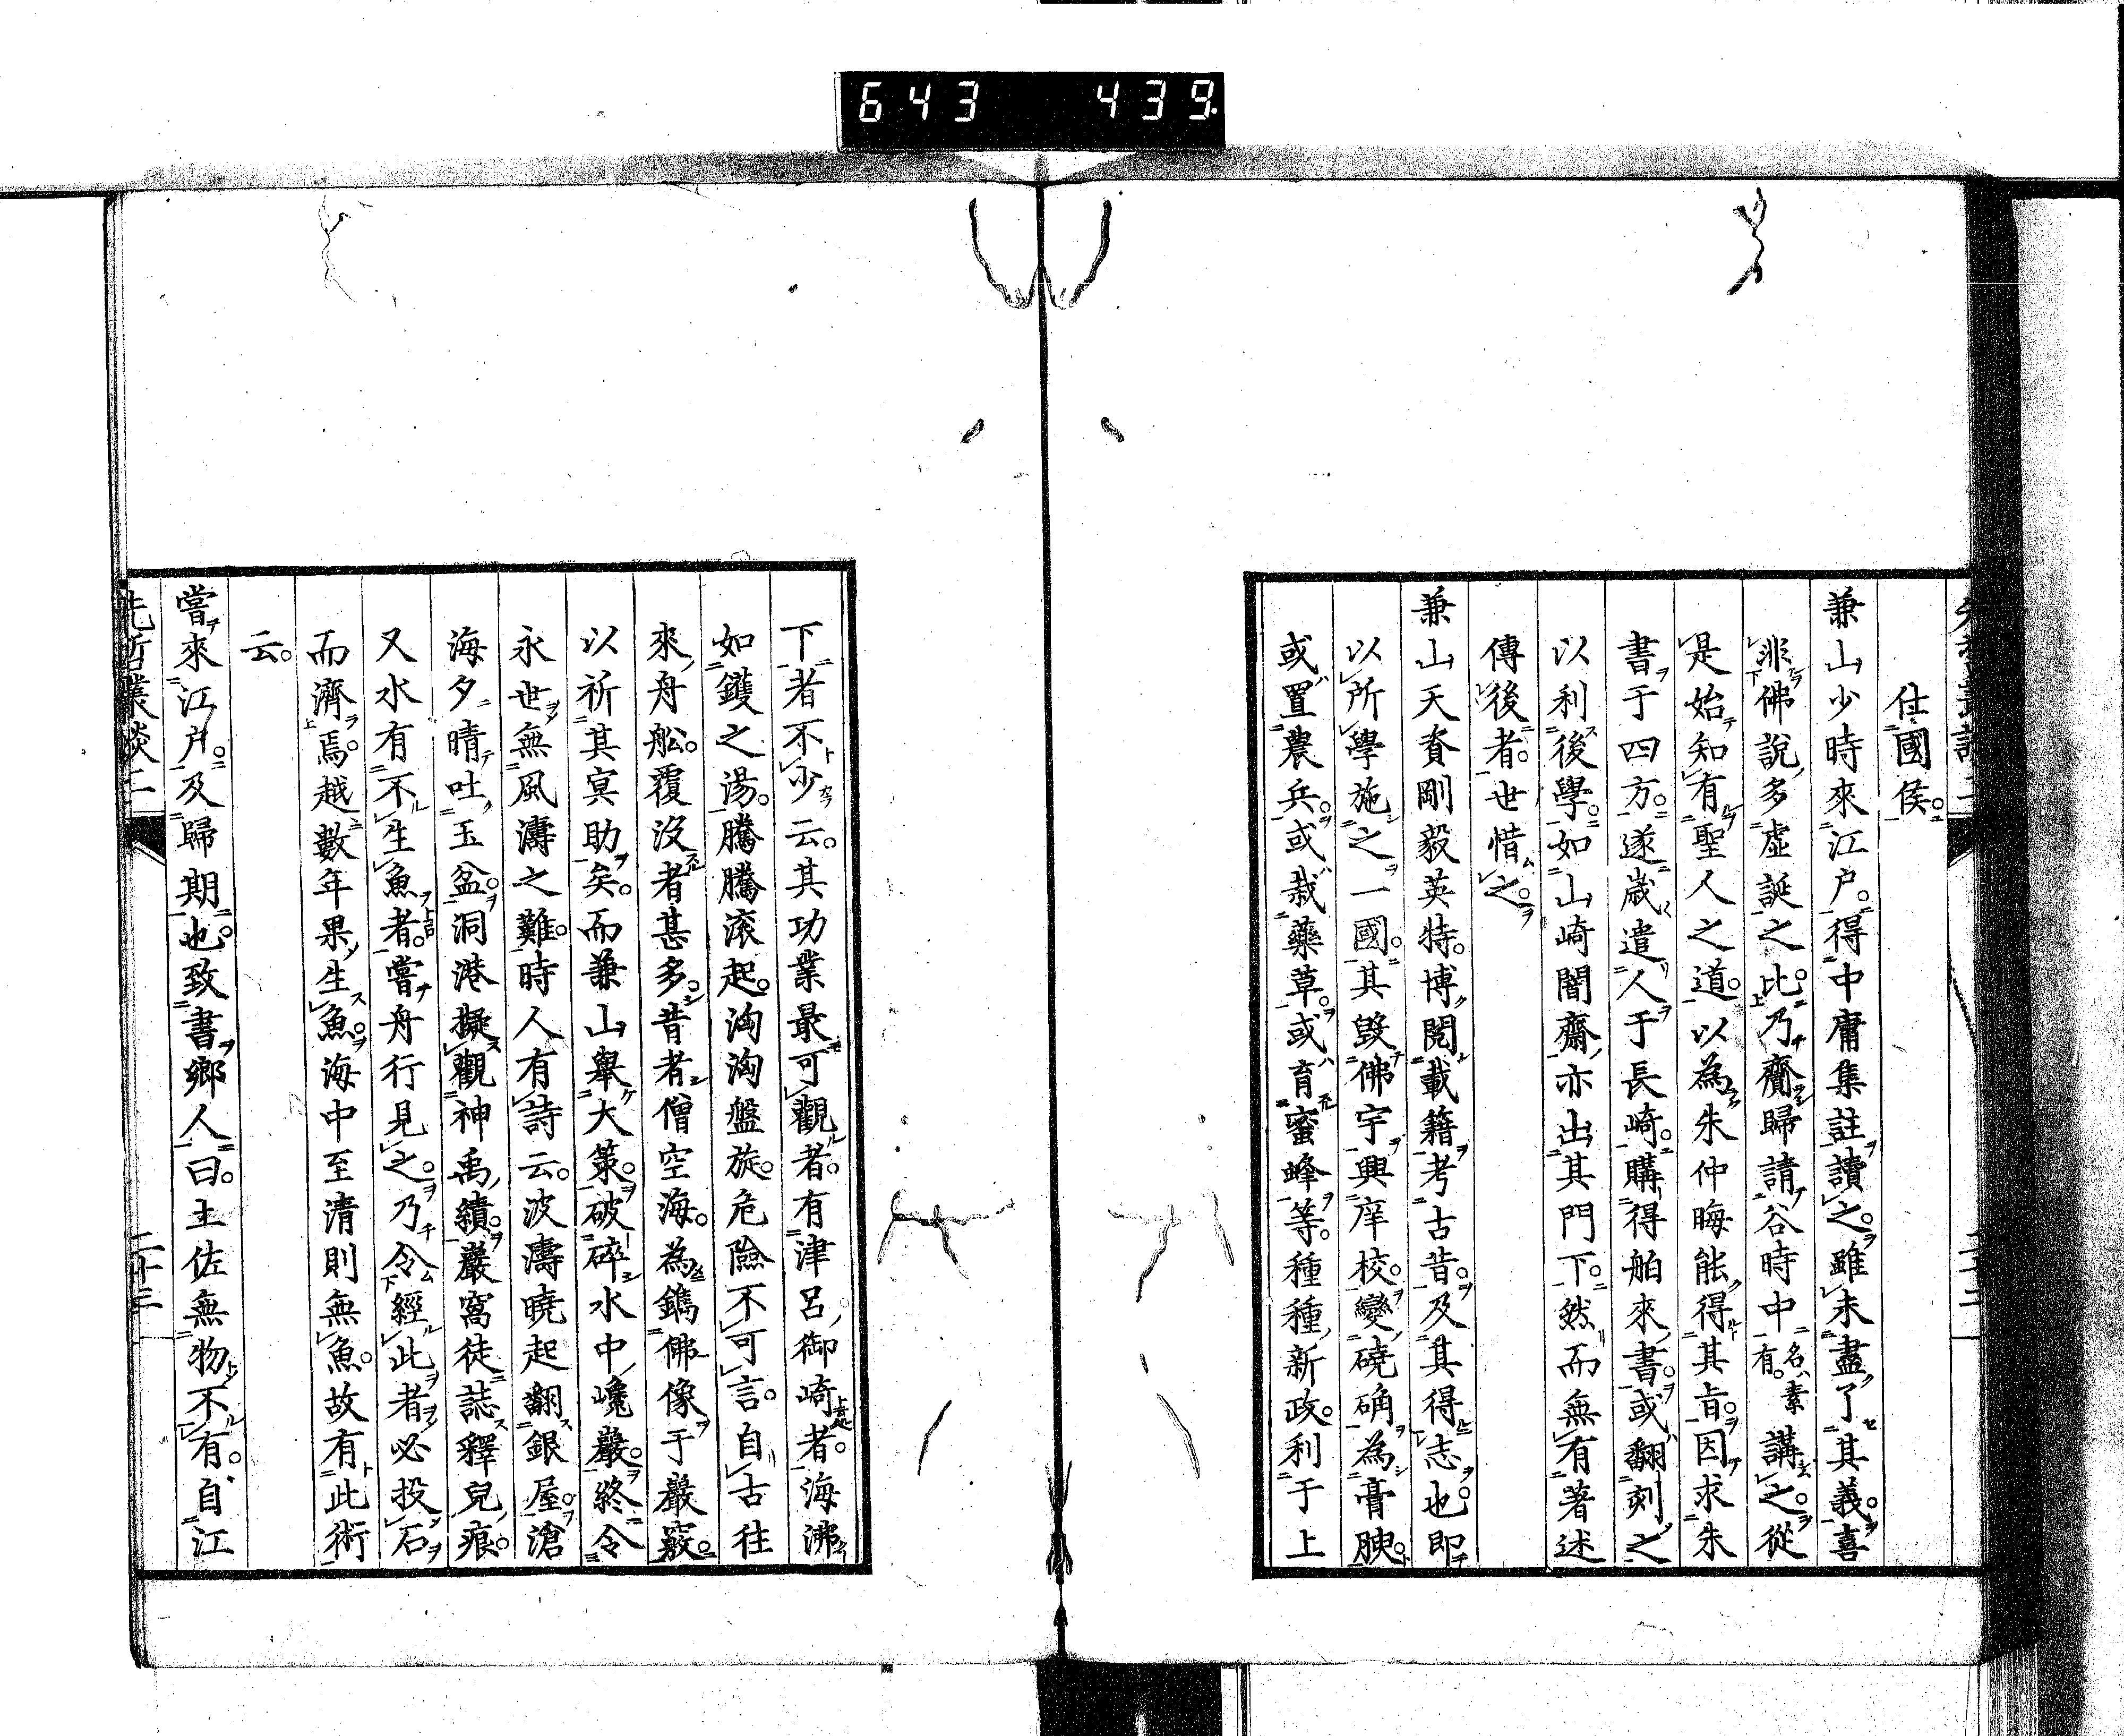 643 439
仕國侯。
兼山少時來江戶。得中庸集註讀之。雖未盡了其義。喜
非佛說多虛誕之比。乃齎歸請谷時中名素有。講之。從
是始知有聖人之道。以為朱仲晦能得其旨。因求朱
書于四方。遂歲遣人于長崎。購得舶來書。或翻刻之
以利後學。如山崎闇齋亦出其門下。然而無有著述
傳後者。世惜之。
兼山天資剛毅英特。博閱載籍考古昔。及其得志也。即
以所學施之一國。其毀佛宇興庠校。變磽确為膏腴。
或置農兵。或栽藥草。或育蜜蜂等。種種新政。利于上
下者不少云。其功業最可觀者。有津呂御崎者。海沸
如鑊之湯。騰騰滚起。洶洶盤旋。危險不可言。自古往
來舟舩。覆沒者甚多。昔者僧空海。為鐫佛像于巖竅。
以祈其冥助矣。而兼山舉大策。破碎水中巉巖。終令
永世無風濤之難。時人有詩云。波濤曉起翻銀屋。滄
海夕晴吐玉盆。洞港擬觀神禹績。巖窩徒誌釋兒痕。
又水有不生魚者。嘗舟行見之。乃令經此者必投石
而濟焉。越數年果生魚。海中至清則無魚。故有此術
云。
嘗來江戶。及歸期也。致書鄉人曰。土佐無物不有。自江
先哲叢談二
二十三